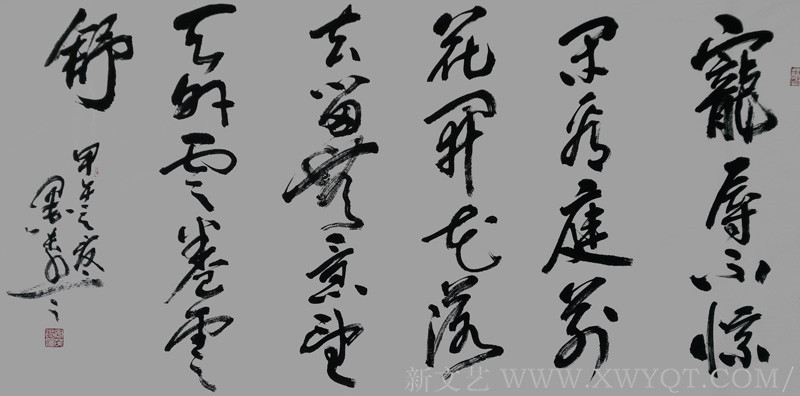 寵辱不惊
闲看庭前
花開花落
去留無意望
天外雲卷雲
舒
甲午之夏
新文艺 WWW.XWYQT.COM/